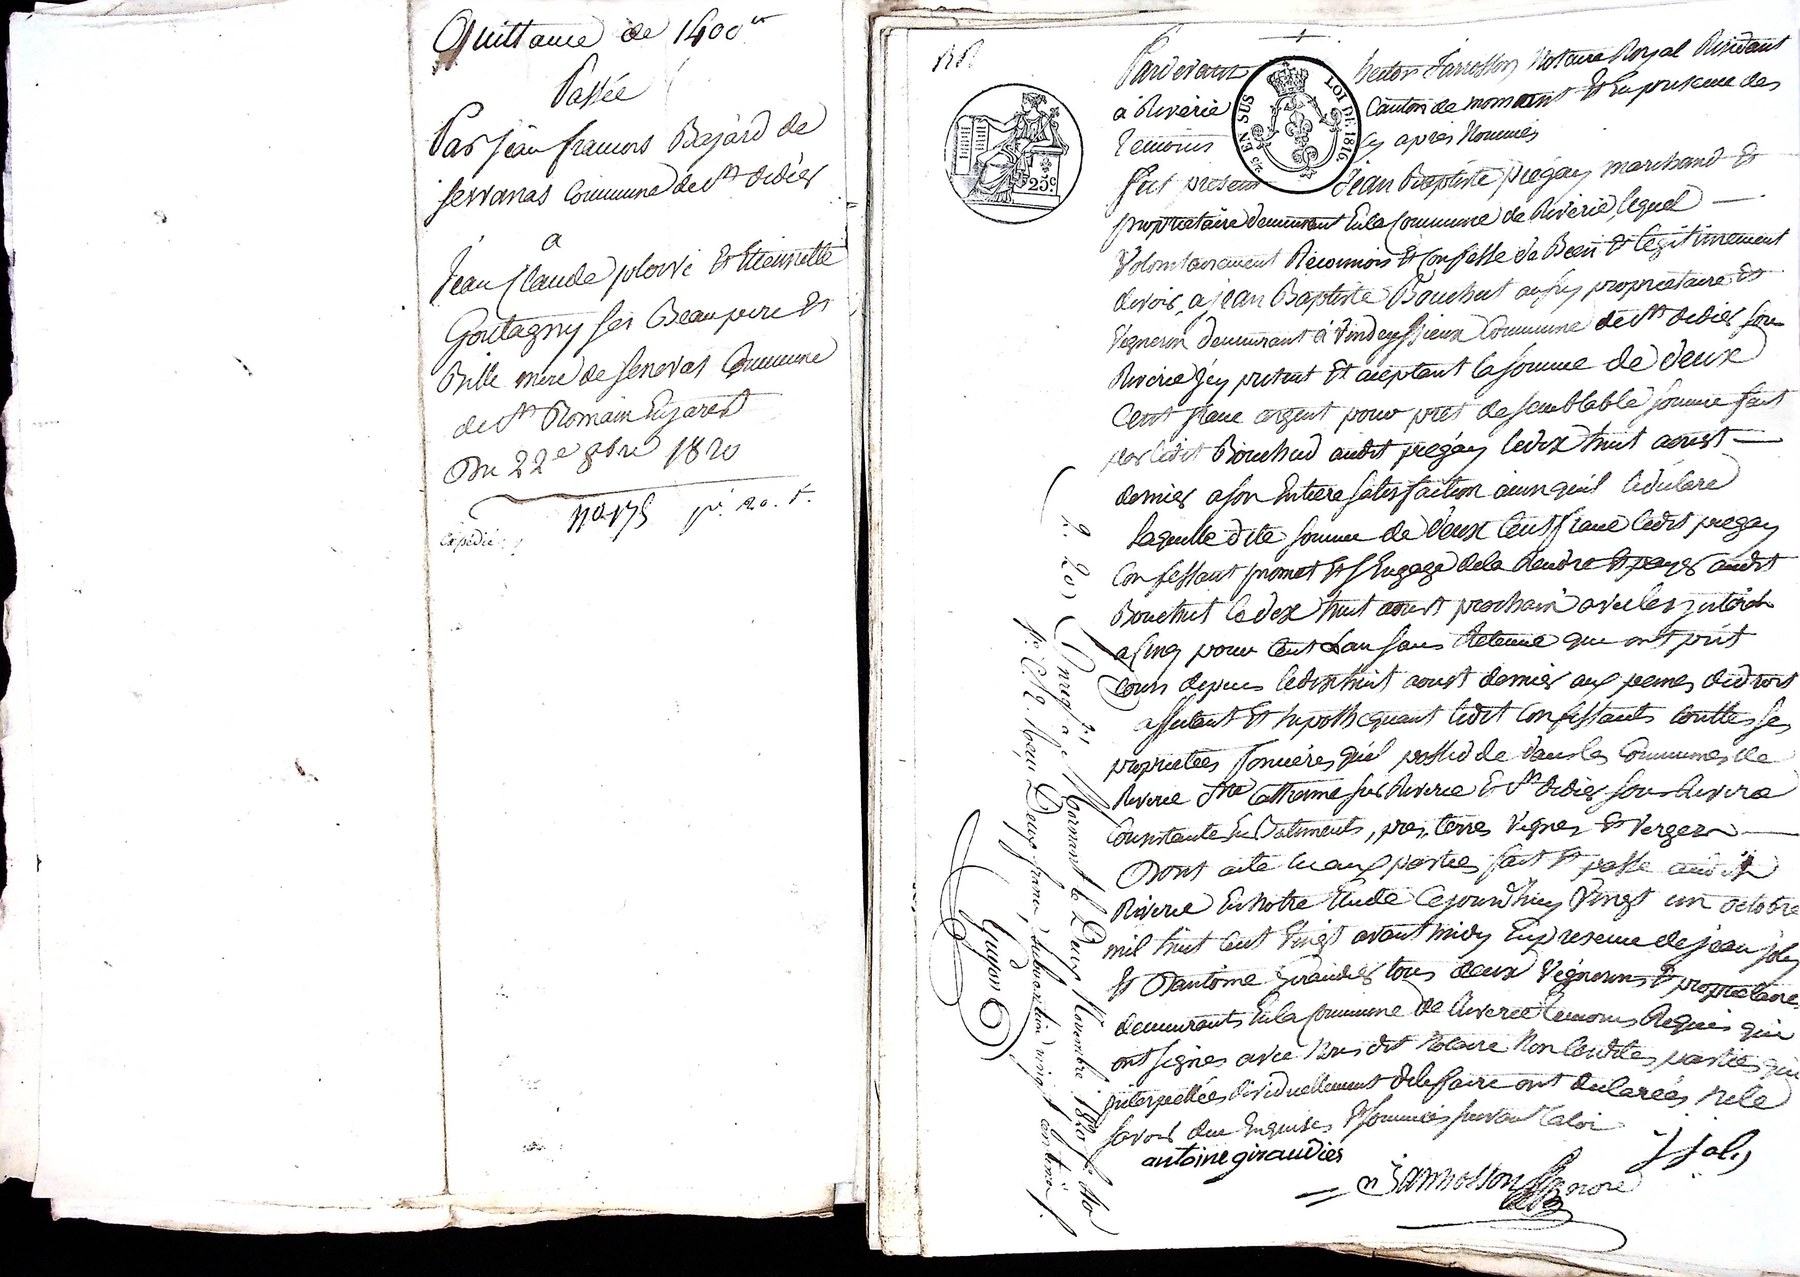 Quittance de 1400 tt
Passée
Par jean francois Bajard de
servanas Commune de st didier
a
jean Claude plovié et Etiennette
Goutagny ses Beau pere et
Belle mere de senevas Commune
de st Romain Enjarest
Du 22e 8bre 1820
n° 175
expédié
Pardevant hector Jannosson Notaire Royal Résidant
à Riverie Canton de mornant et En presence des
Temoins Cy apres Nommés
EN SUS
LOI DE 1816
25 c
fut present jean Baptiste pregay marchand et
proprietaire demeurant En la Commune de Riverie, lequel
Volontairement Reconnois et Confesse de Bien et legitimement
devoir, a jean Baptiste Bouchut aussy proprietaire et
Vigneron demeurant à Commune de st didier sous
Riverie jcy present et aceptant la somme de deux
Cent franc argent pour pret de semblable somme fait
par ledit Bouchud audit pregay le dix huit aoust
dernier a son Entiere satisfaction ainsy quil le déclare
Laquelle dite somme de deux Cent franc ledit pregay
Confessant promet et s'Engage de la Rendre et payer audit
Bouchut le dix huit aoust prochain avec les jnterets
a Cinq pour Cent L'an sans Retenue qui ont prit
Cours depuis le dix huit aoust dernier aux peines de droit
affectant et hypothequant ledit Confessants touttes ses
proprietées foncieres qu'il possede dans les Communes de
Riverie ste Catherine sur Riverie et st didier sous Riverie
Consistante En Batiments, pres, terres Vignes et Verger
Dont acte lu aux parties fait et passé audit
Riverie En notre Etude Cejourd'huy Vingt un octobre
mil huit Cent Vingt avant midy En presence de jean joly
et D'antoine Giraudier tous deux Vignerons et proprietaire
demeurants En la Commune de Riverie temoins Requis qui
ont signés avec Nous dit Notaire Non lesdites parties qui
jnterpellées dividuellement de le faire ont declarées ne le
savoir due Enquises et sommées suivant la loi
antoine giraudier
j joly
Jannosson
Enregtré à Mornant le Deux Novembre 1820 fo
Reçu Deux francs, subvention vingt centimes.
Guyon